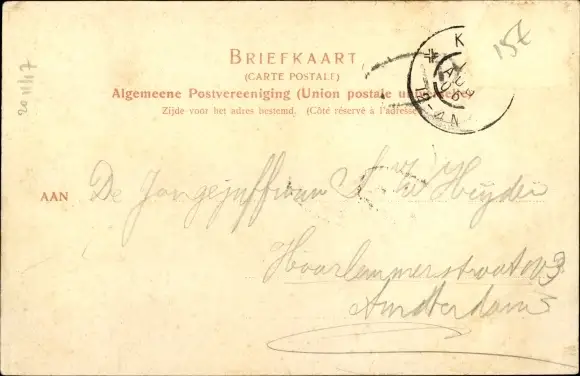 BRIEFKAART
(CARTE POSTALE)
Algemeene Postvereeniging (Union postale universelle)
Zijde voor het adres bestemd. (Côté réservé à l'adresse)
AAN De Jongejuffrouw A. v/d Heyden
Haarlemmerstraat
Amsterdam
15€